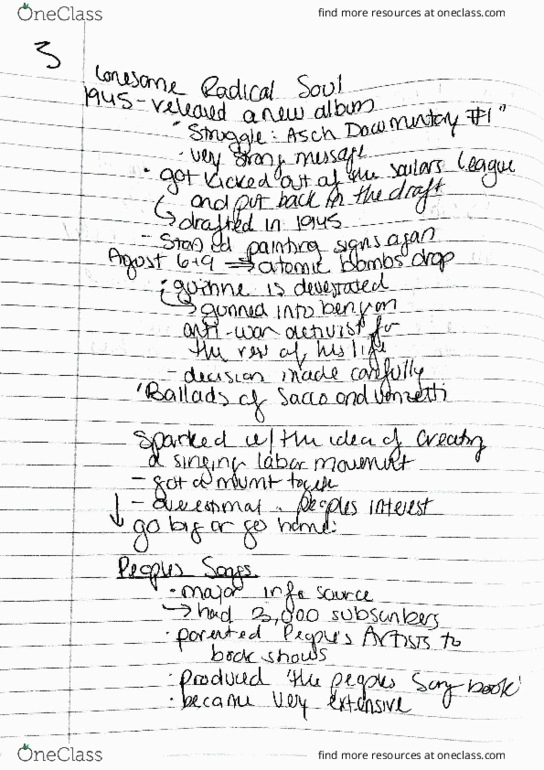 OneClass
find more resources at oneclass.com
3
Lonesome Radical Soul
1945 - released a new album
"Struggle: Asch Documentary #1"
· very strong message
· got kicked out of the sailors league
and put back in the draft
↳ drafted in 1945
- started painting signs again
August 6+9 → atomic bombs drop
· guthrie is devestated
↳ into
anti-war activist for
the of his life
- decision made carefully
"Ballads of Sacco and
Sparked w/ the idea of creating
a singing labor movement
- got a
↓ - peoples interest
go big or go home:
Peoples Songs
· major info source
→ had 3,000 subscribers
· parented People's Artists to
book shows
· produced 'the peoples Song book'
· became very extensive
OneClass
find more resources at oneclass.com